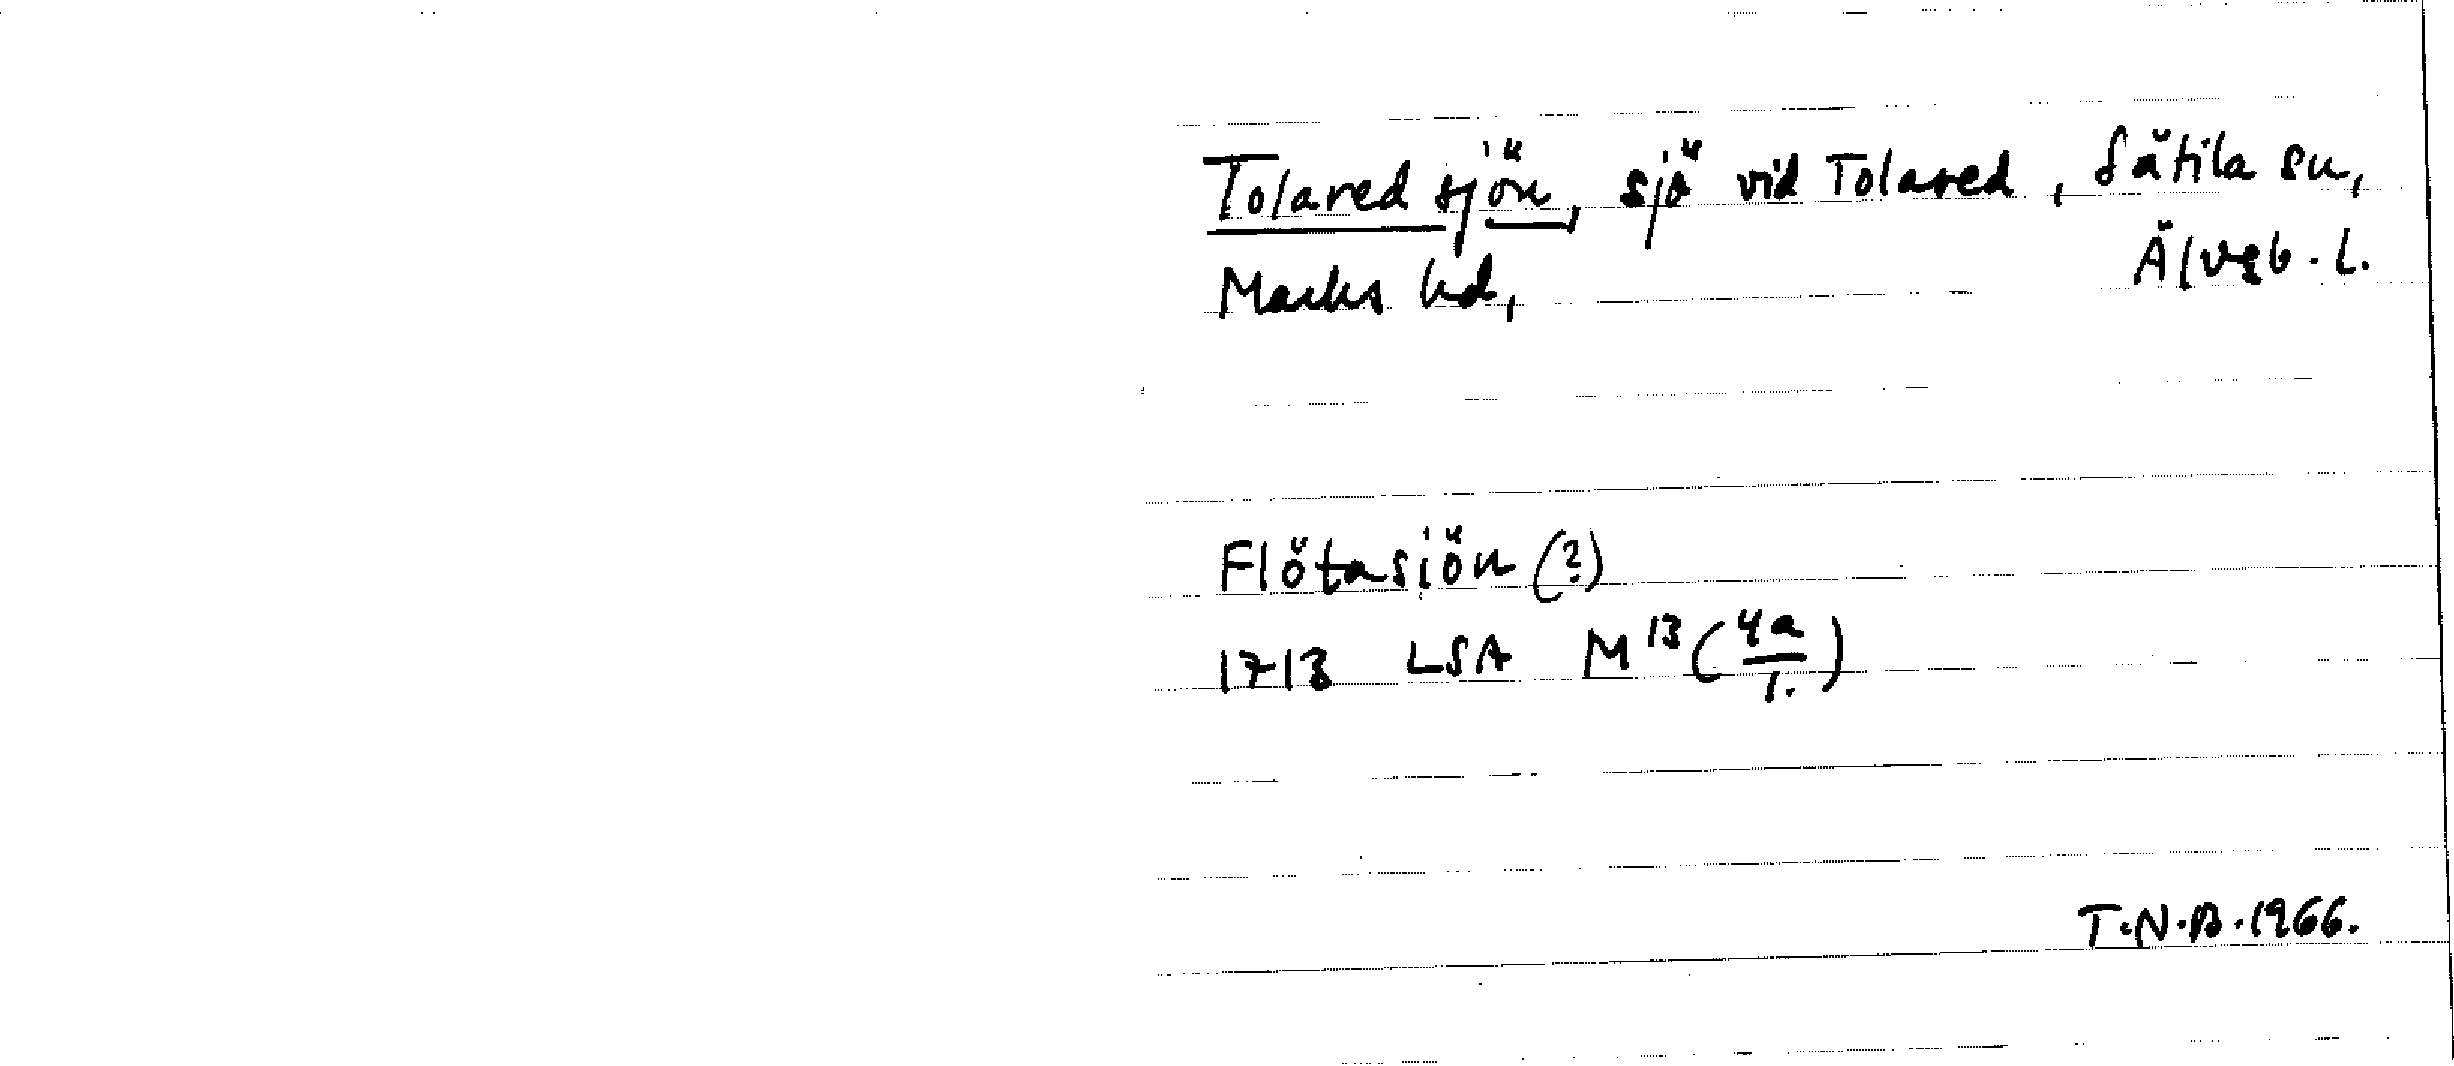 Tolaredsjön, sjö vid Tolared, Sätila sn,
Marks hd, Älvsb. l.
Flötasjön (?)
1713 LSA M 13 (4a/1.)
T.N.B. 1966.